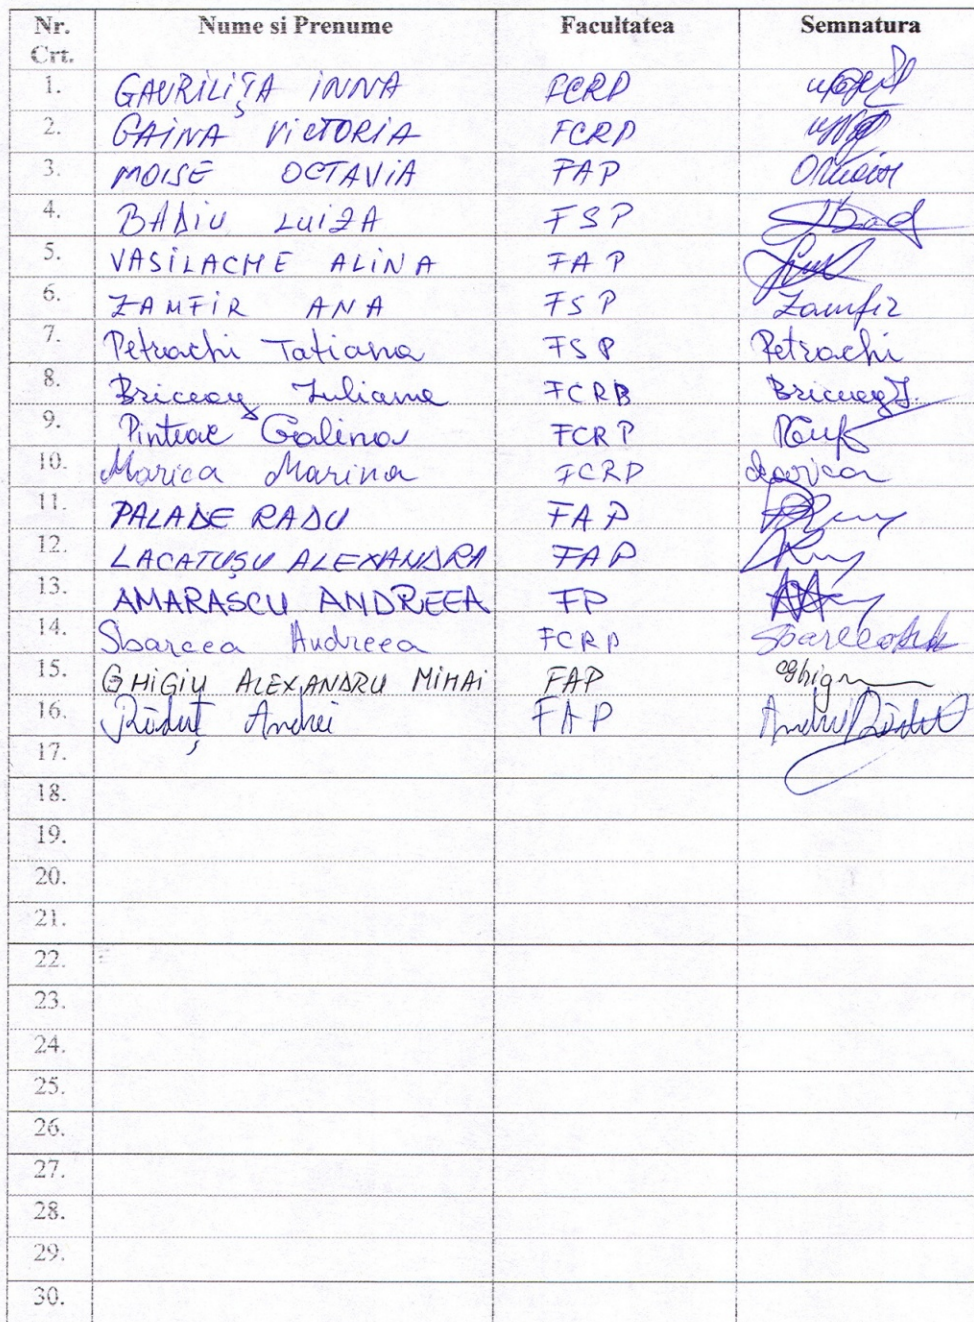 Nr. Crt. Nume si Prenume Facultatea Semnatura
1. GAVRILIȚA INNA FCRP
2. GAINA VICTORIA FCRP
3. MOISE OCTAVIA FAP
4. BADIU LUIZA FSP
5. VASILACHE ALINA FAP
6. ZAMFIR ANA FSP Zamfir
7. Petrachi Tatiana FSP Petrachi
8. Briceag Iuliana FCRP Briceag I.
9. Galina FCRP
10. Marica Marina FCRP Marica
11. PALADE RADU FAP
12. LACATUȘU ALEXANDRA FAP
13. AMARASCU ANDREEA FP
14. Sbarcea Andreea FCRP
15. GHIGIU ALEXANDRU MIHAI FAP
16. Răduț Andrei FAP
17.
18.
19.
20.
21.
22.
23.
24.
25.
26.
27.
28.
29.
30.